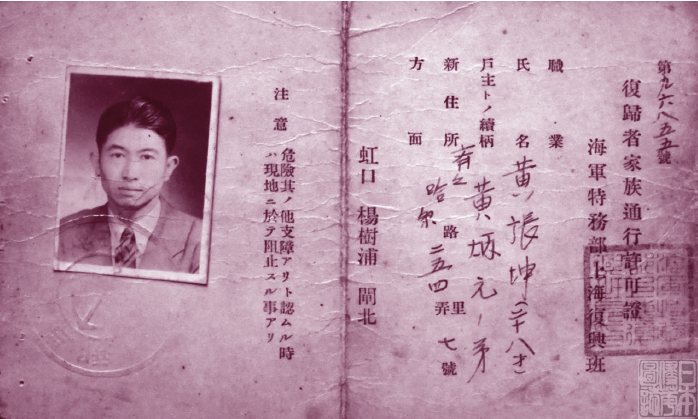 第九六八五五號
復歸者家族通行許可證
海軍特務部上海復興班
職業
氏名 黃張坤(二十八才)
戶主トノ續柄 黃炳元ノ弟
新住所 哈尔路二五四里弄七號
方面
虹口 楊樹浦 閘北
注意 危險其ノ他支障アリト認ムル時
ハ現地ニ於テ阻止スル事アリ